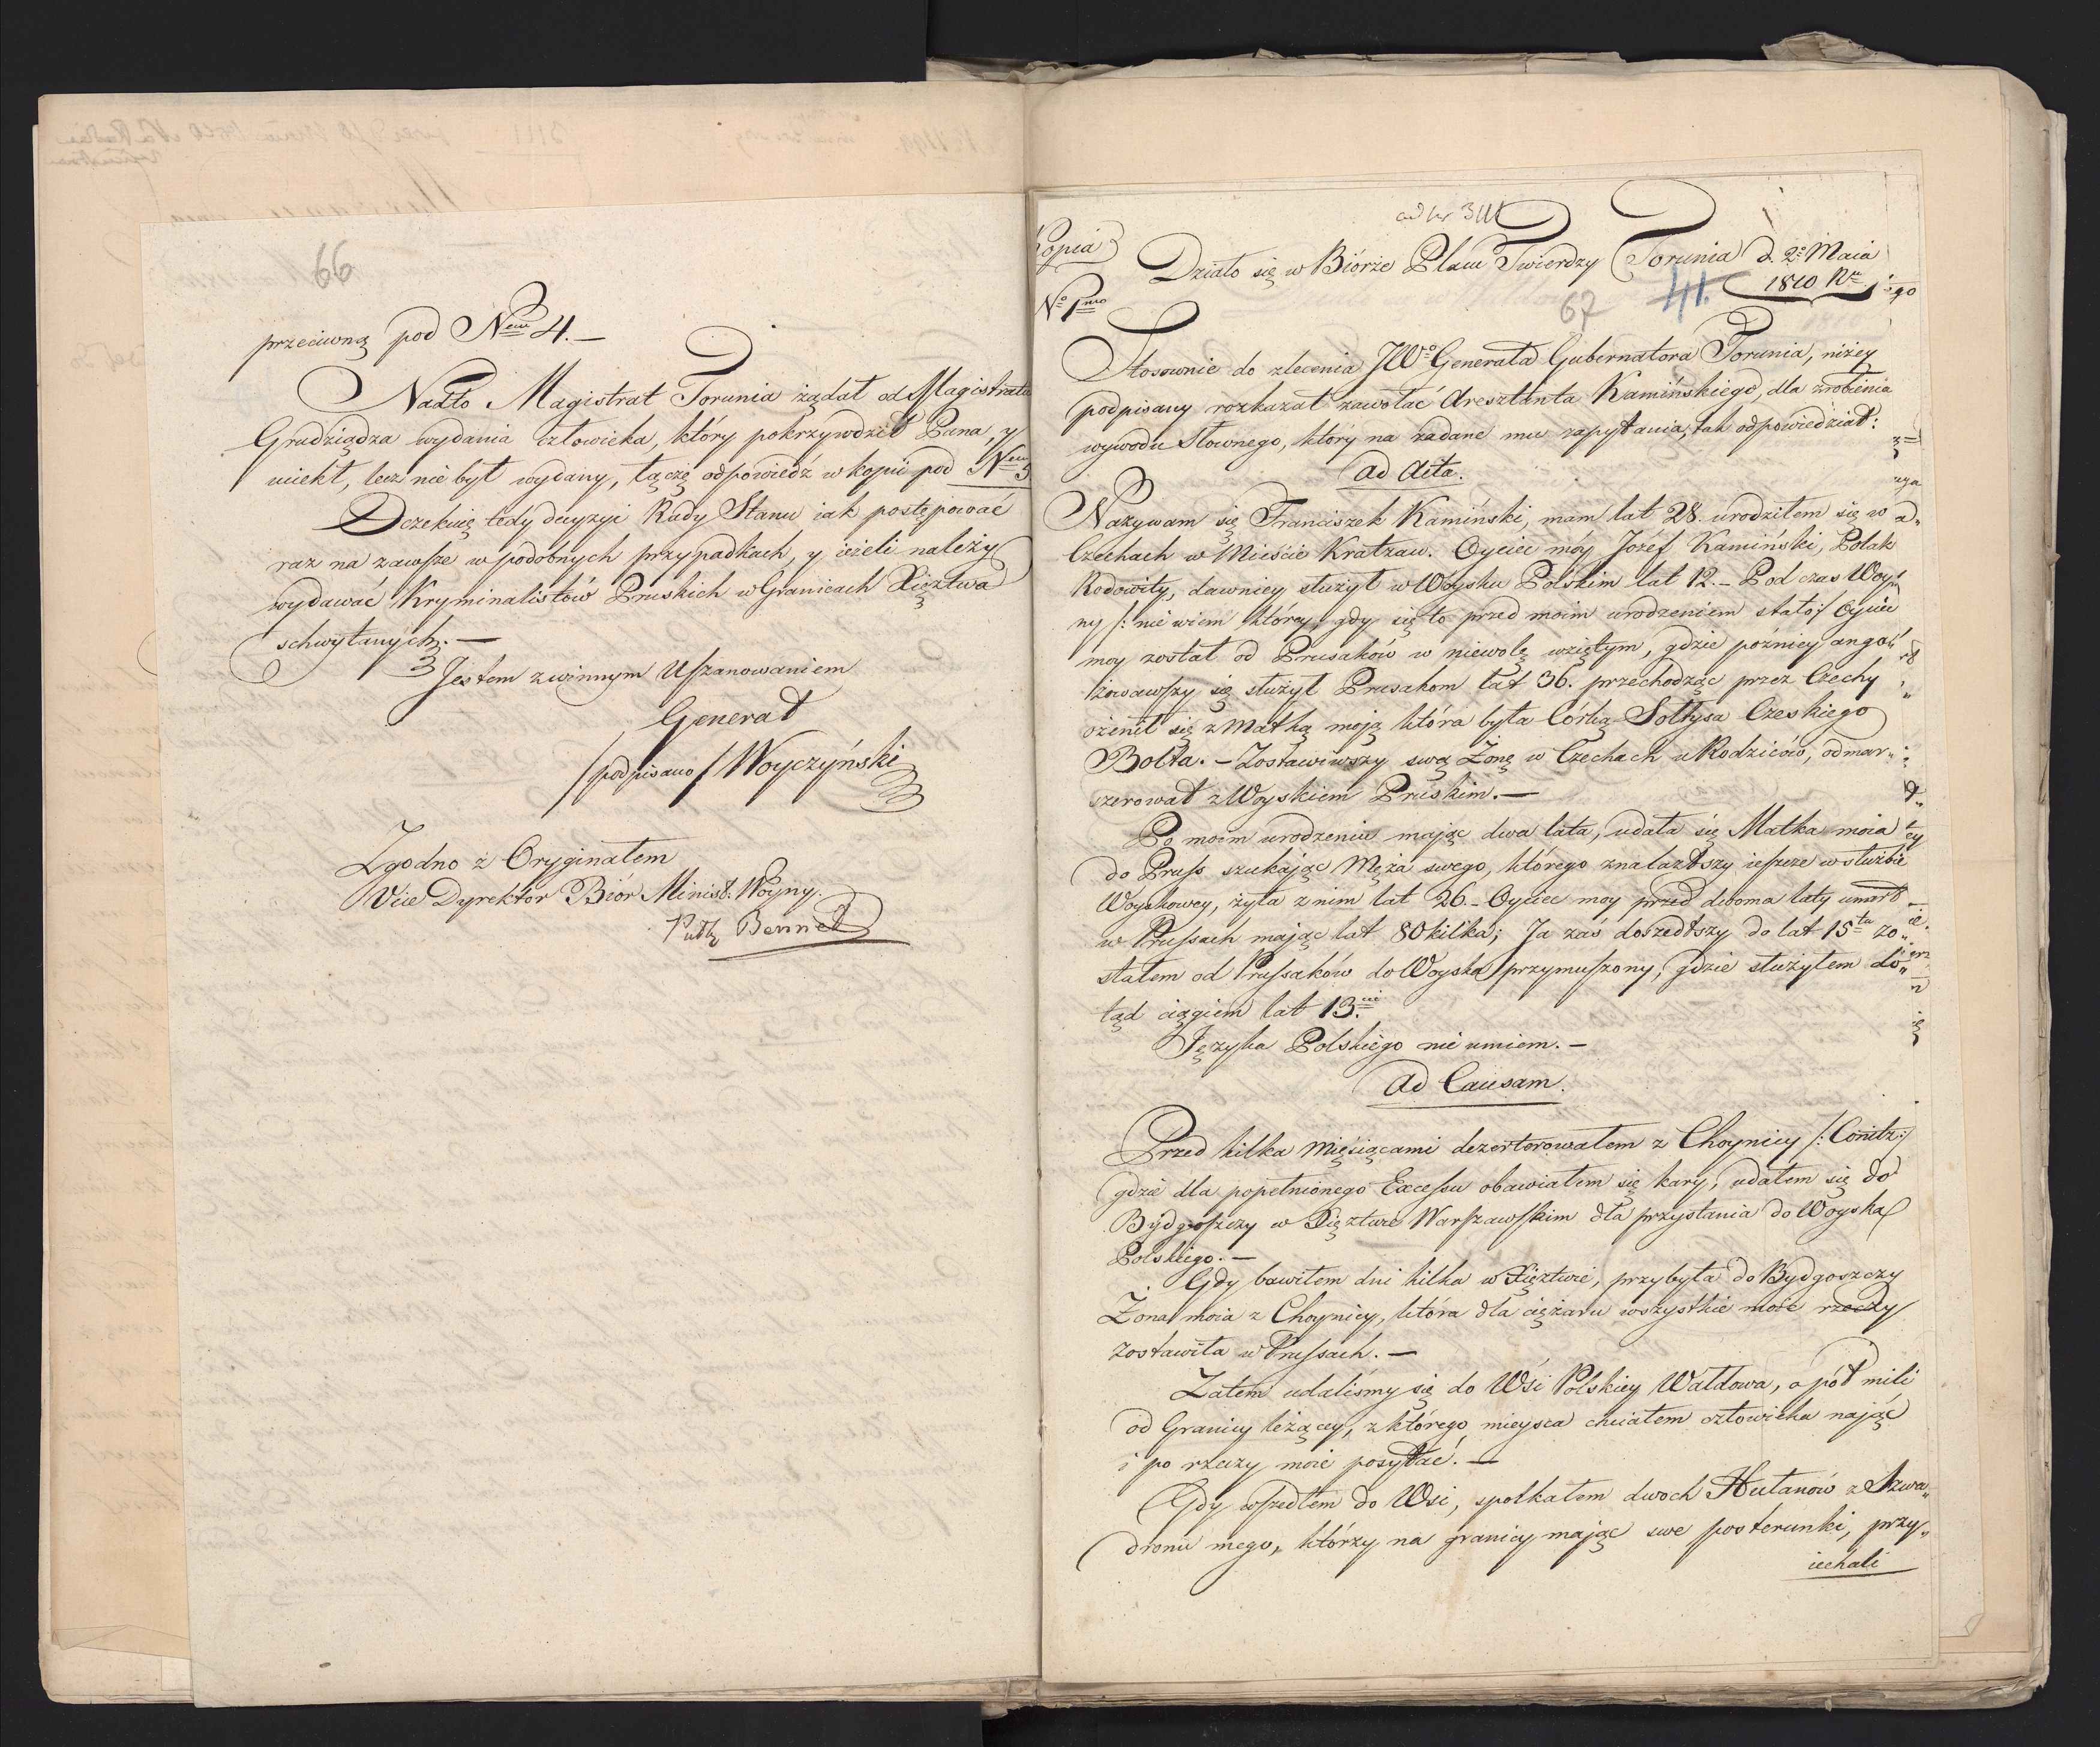 66
przeciwną pod Nem 4. —
Nadto Magistrat Torunia żądał od Magistratu
Grudziądza wydania człowieka, który pokrzywdził Pana, y
uciekł, lecz nie był wydany, łączę odpowiedź w kopii pod Nem 5
Oczekuię tedy decyzyi Rady Stanu iak postępować
raz na zawsze w podobnych przypadkach, y ieżeli należy
wydawać Kryminalistów Pruskich w Granicach Xięztwa
schwytanych. —
Jestem z winnym Uszanowaniem
Generał
/podpisano/ Woyczyński
Zgodno z Oryginałem
Vice Dyrektor Biór Minist. Woyny.
Putk Bennet
ad Nr 3111
Kopia
Działo się w Biórze Placu Twierdzy Torunia d. 2o Maia
1810 Rr
No 1mo
67 41.
Stosownie do zlecenia JWo Generała Gubernatora Torunia, niżey
podpisany rozkazał zawołać Aresztanta Kamińskiego, dla zrobienia
wywodu Słownego, który na zadane mu zapytania, tak odpowiedział:
Ad Acta.
Nazywam się Franciszek Kamiński, mam lat 28. urodziłem się w
Czechach w Mieście Kratzau. Oyciec móy Jozéf Kamiński, Polak
Rodowity, dawniey służył w Woysku Polskim lat 12. — Pod czas Woy„
ny /: nie wiem którey, gdy się to przed moim urodzeniem stało :/ Oyciec
moy został od Prusaków w niewolę wziętym, gdzie pozniey anga„
żowawszy się służył Prusakom lat 36. przechodząc przez Czechy
ożenił się z Matką moią która była Córką Sołtysa Czeskiego
Bolta. — Zostawiwszy swą Żonę w Czechach u Rodziców, odmar„
szerował z Woyskiem Pruskim. —
Po moim urodzeniu mając dwa lata, udała się Matka moia
do Pruss szukając Męża swego, którego znalazłszy ieszcze w służbie
Woyskowey, żyła z nim lat 26. — Oyciec moy przed dwoma laty umarł
w Prussach mając lat 80 kilka; Ja zaś doszedłszy do lat 15tu zo„
stałem od Prussaków do Woyska przymuszony, gdzie służyłem do„
tąd ciągiem lat 13.cie
Języka Polskiego nie umiem. —
Ad Causam.
Przed kilka Mięsiącami dezerterowałem z Choynicy /: Conitz :/
gdzie dla popełnionego Excessu obawiałem się kary, udałem się do
Bydgoszczy w Xięztwie Warszawskim dla przystania do Woyska
Polskiego. —
Gdy bawiłem dni kilka w Xięztwie, przybyła do Bydgoszczy
Żona moia z Choynicy, która dla ciężaru wszystkie moie rzeczy
zostawiła w Prussach. —
Zatem udaliśmy się do Wsi Polskiey Wałdowa, o pół mili
od Granicy leżącey, z którego mieysca chciałem człowieka nająć
i po rzeczy moie posyłać. —
Gdy wszedłem do Wsi, spotkałem dwoch Hułanów z Szwa„
dronu mego, którzy na granicy mając swe posterunki, przy„
iechali